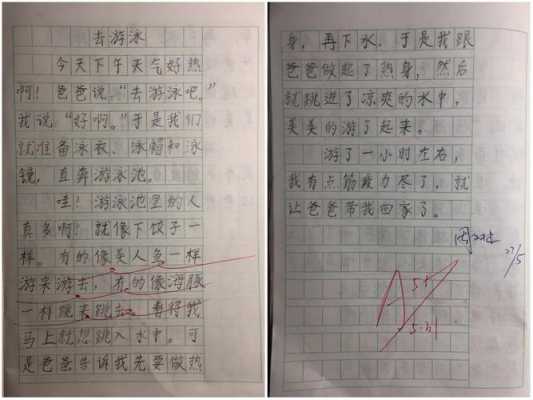 去游泳
今天下午天气好热
啊！爸爸说："去游泳吧。"
我说："好啊。"于是我们
就准备泳衣、泳帽和泳
镜，直奔游泳池。
哇！游泳池里的人
真多啊！就像下饺子一
样。有的像美人鱼一样
游来游去，有的像海豚
一样跳来跳去。看得我
马上就想跳入水中。可
是爸爸告诉我先要做热
身，再下水．于是我跟
爸爸做起了热身，然后
就跳进了凉爽的水中，
美美的游了起来。
游了一小时左右，
我有点筋疲力尽了，就
让爸爸带我回家了。
27/5
A
5.31